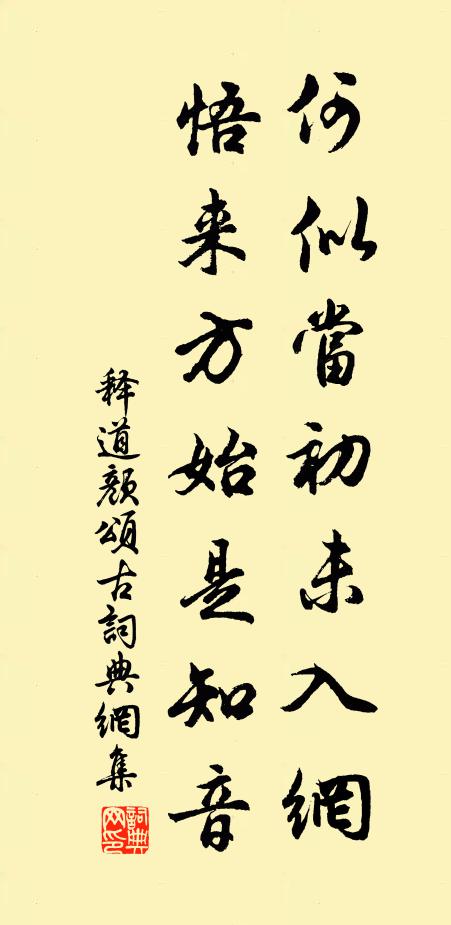 何似當初未入網
悟来方始是知音
释道顔頌古詞典網集
詞典网印